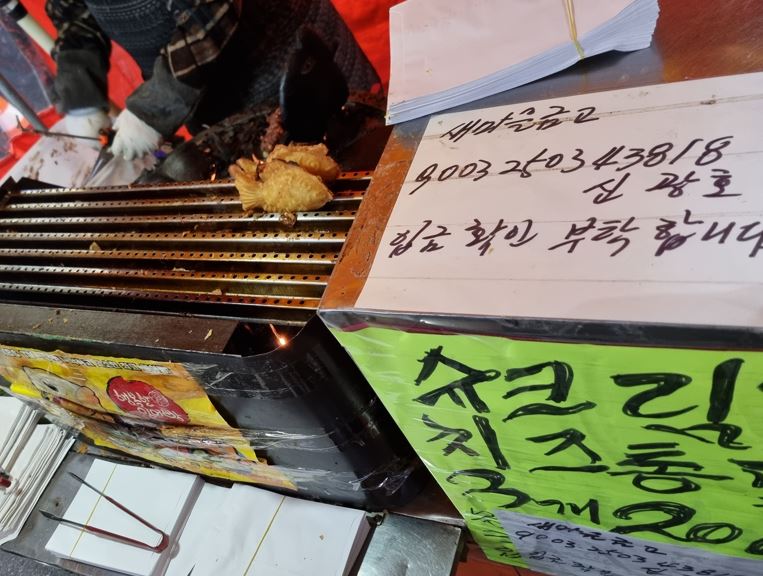 새마을금고
9003 2503 4381 8
신 광 호
입금 확인 부탁 합니다
슈크림
치즈통
3개 200
새마을금고
9003-2503